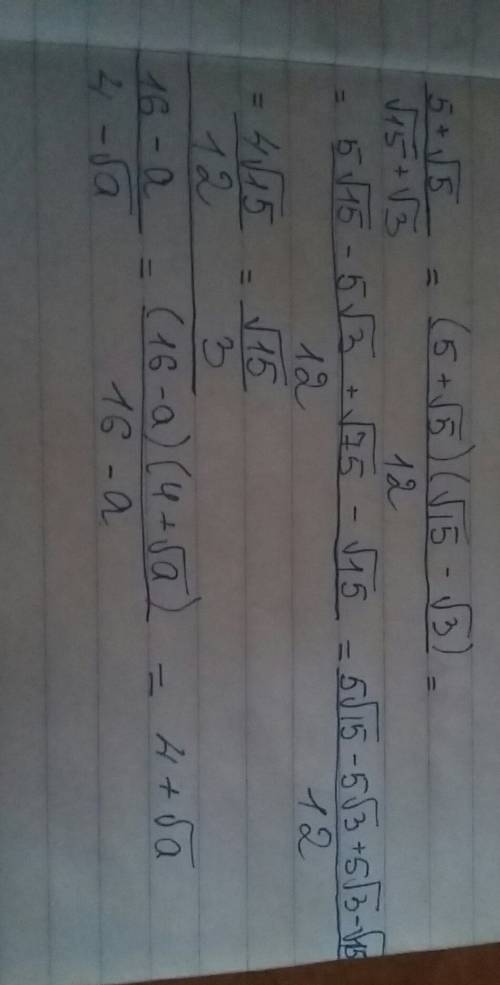 (5 + √5) / (√15 + √3) = ((5 + √5)(√15 - √3)) / 12 =
= (5√15 - 5√3 + √75 - √15) / 12 = (5√15 - 5√3 + 5√3 - √15) / 12
= 4√15 / 12 = √15 / 3
(16 - a) / (4 - √a) = ((16 - a)(4 + √a)) / (16 - a) = 4 + √a